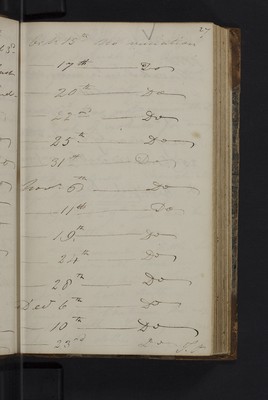 27
Octr 15th No variation
17th Do
20th Do
22nd Do
25th Do
31st Do
Novr 6th Do
11th Do
19th Do
24th Do
28th Do
Decr 6th Do
10th Do
23rd Do